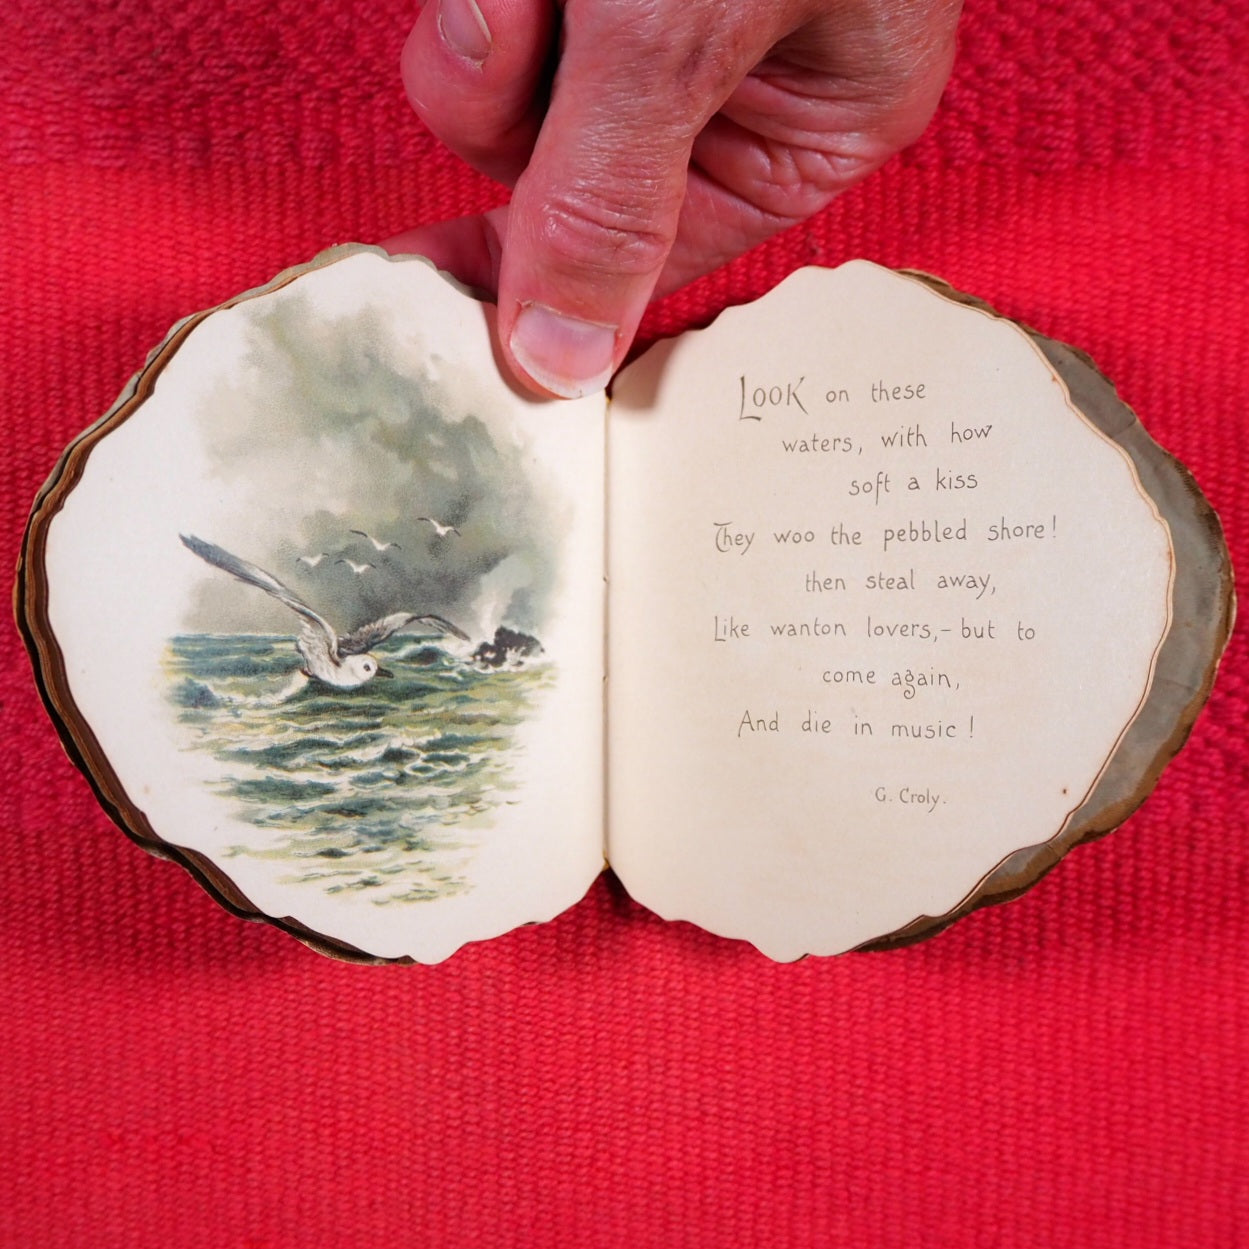 Look on these
waters, with how
soft a kiss
They woo the pebbled shore!
then steal away,
Like wanton lovers,- but to
come again,
And die in music!
G. Croly.